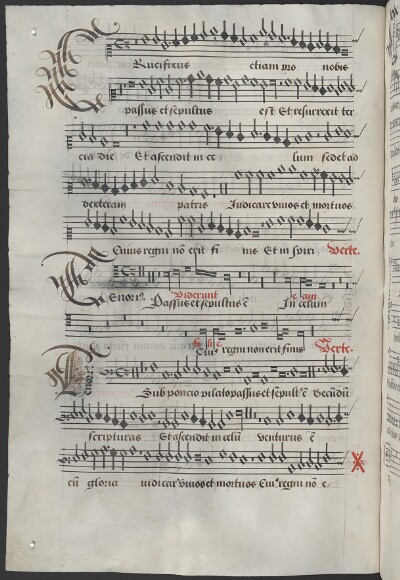 Crucifixus etiam pro nobis
passus et sepultus est Et resurrexit ter
cia die Et ascendit in ce lum sedet ad
dexteram patris Judicare vivos et mortuos
Cuius regni nō erit fi nis Et in spiri Verte.
Tenor Viderunt eam
Passus et sepultus ē In celum
Cuiꝰ regni non erit finis Verte.
Tenor
Sub poncio pilato passus et sepultꝰ ē Secūdū
scripturas Et ascendit in celū Venturus ē
cū gloria iudicare vivos et mortuos Cuiꝰ regni nō e